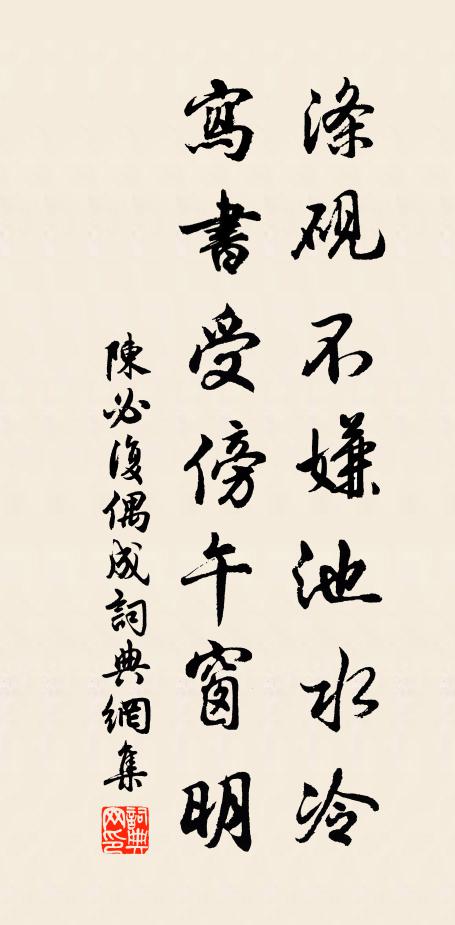 滌硯不嫌池水冷
寫書受傍午窗明
陳必復偶成詞典網集
詞典网印